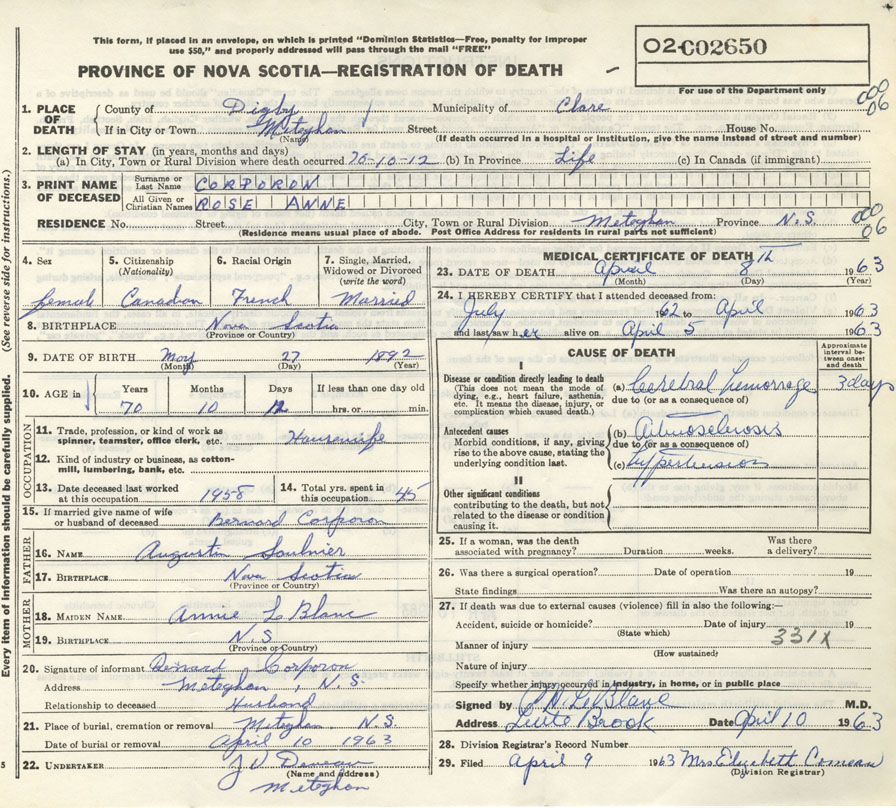 This form, if placed in an envelope, on which is printed "Dominion Statistics—Free, penalty for improper
use $50," and properly addressed will pass through the mail "FREE"
02-C02650
PROVINCE OF NOVA SCOTIA—REGISTRATION OF DEATH
For use of the Department only
000
06
1. PLACE OF DEATH
County of Digby Municipality of Clare
If in City or Town Meteghan Street House No.
(Name) (If death occurred in a hospital or institution, give the name instead of street and number)
2. LENGTH OF STAY (in years, months and days)
(a) In City, Town or Rural Division where death occurred 70-10-12 (b) In Province Life (c) In Canada (if immigrant)
3. PRINT NAME OF DECEASED
Surname or Last Name CORPORON
All Given or Christian Names ROSE ANNE
RESIDENCE No. Street City, Town or Rural Division Meteghan Province N.S.
000
06
(Residence means usual place of abode. Post Office Address for residents in rural parts not sufficient)
4. Sex 5. Citizenship (Nationality) 6. Racial Origin 7. Single, Married, Widowed or Divorced (write the word)
female Canadian French Married
8. BIRTHPLACE Nova Scotia
(Province or Country)
9. DATE OF BIRTH May 27 1892
(Month) (Day) (Year)
10. AGE in Years Months Days If less than one day old
70 10 12 hrs. or min.
OCCUPATION
11. Trade, profession, or kind of work as spinner, teamster, office clerk, etc. Housewife
12. Kind of industry or business, as cotton-mill, lumbering, bank, etc.
13. Date deceased last worked at this occupation 1958
14. Total yrs. spent in this occupation 45
15. If married give name of wife or husband of deceased Bernard Corporon
FATHER
16. NAME Augustin Saulnier
17. BIRTHPLACE Nova Scotia
(Province or Country)
MOTHER
18. MAIDEN NAME Annie LeBlanc
19. BIRTHPLACE N.S
(Province or Country)
20. Signature of informant Bernard Corporon
Address Meteghan, N.S.
Relationship to deceased Husband
21. Place of burial, cremation or removal Meteghan N.S.
Date of burial or removal April 10 1963
22. UNDERTAKER J V Deveau
(Name and address)
Meteghan
MEDICAL CERTIFICATE OF DEATH
23. DATE OF DEATH April 8th 1963
(Month) (Day) (Year)
24. I HEREBY CERTIFY that I attended deceased from:
July 1962 to April 1963
and last saw her alive on April 5 1963
CAUSE OF DEATH
Approximate interval between onset and death
I
Disease or condition directly leading to death
(This does not mean the mode of dying, e.g., heart failure, asthenia, etc. It means the disease, injury, or complication which caused death.)
(a) Cerebral hemorrage 3 days
due to (or as a consequence of)
Antecedent causes
Morbid conditions, if any, giving rise to the above cause, stating the underlying condition last.
(b)
due to (or as a consequence of)
(c) hypertension
II
Other significant conditions
contributing to the death, but not related to the disease or condition causing it.
25. If a woman, was the death associated with pregnancy? Duration weeks. Was there a delivery?
26. Was there a surgical operation? Date of operation 19
State findings Was there an autopsy?
27. If death was due to external causes (violence) fill in also the following:—
Accident, suicide or homicide? Date of injury 19
(State which) 331X
Manner of injury
(How sustained)
Nature of injury
Specify whether injury occurred in industry, in home, or in public place
Signed by LeBlanc M.D.
Address Little Brook Date April 10 1963
28. Division Registrar's Record Number
29. Filed April 9 1963 Mrs Elizabeth Comeau
(Division Registrar)
Every item of information should be carefully supplied. (See reverse side for instructions.)
5